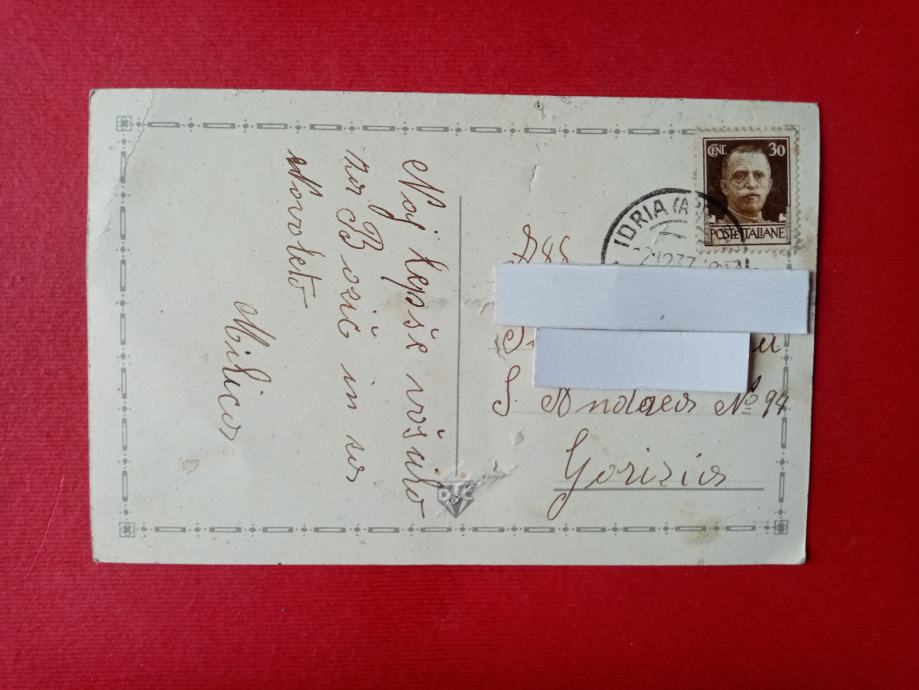 Naj lepše voščilo
za Božič in za
Novoleto
Milica
CENT. 30
POSTE ITALIANE
IDRIA
S. Andrea No 94
Gorizia